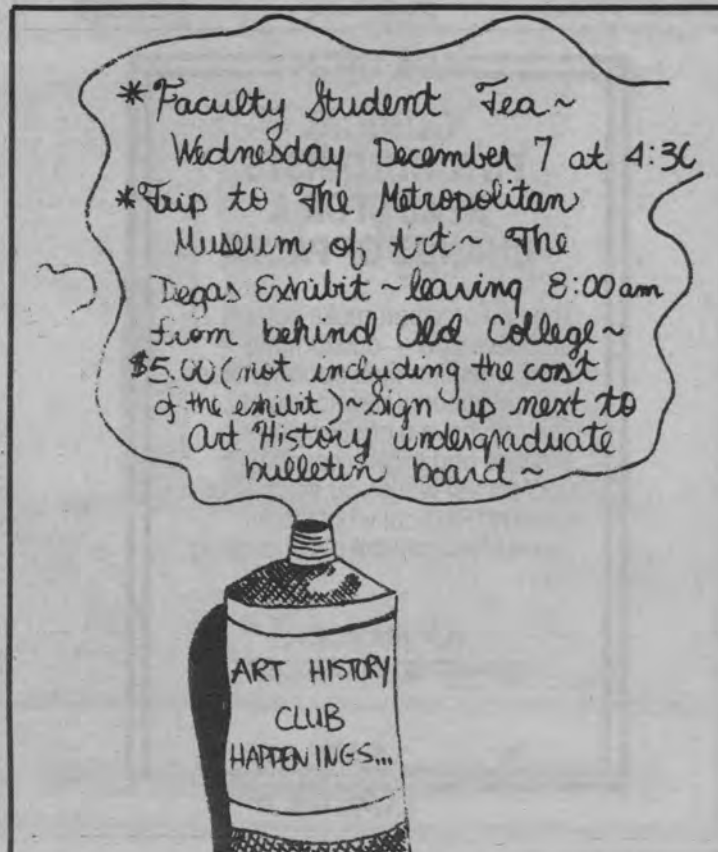 *Faculty Student Tea~
Wednesday December 7 at 4:30
*Trip to The Metropolitan
Museum of Art~ The
Degas Exhibit~leaving 8:00am
from behind Old College~
$5.00 (not including the cost
of the exhibit)~Sign up next to
Art History undergraduate
bulletin board~
ART HISTORY
CLUB
HAPPENINGS...